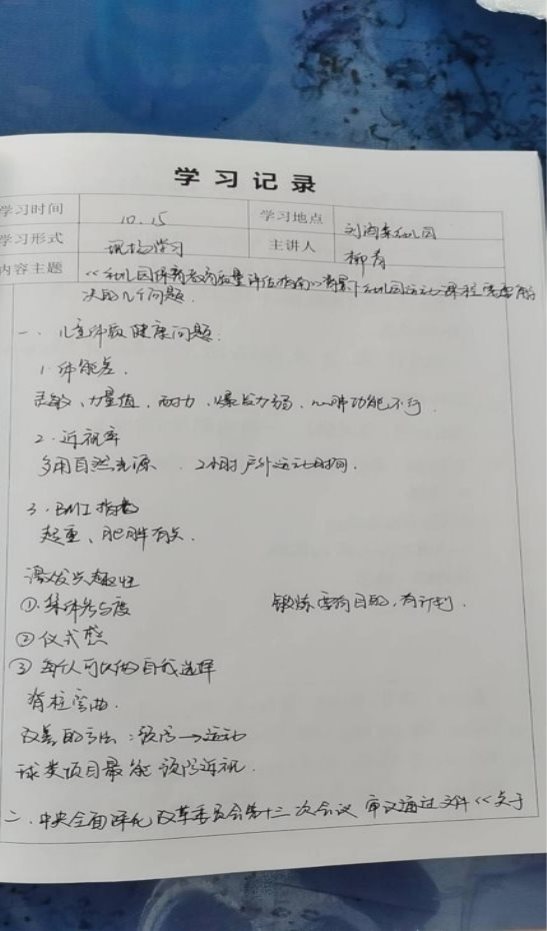 学习记录
学习时间 10.15 学习地点 刘河东幼儿园
学习形式 现场学习 主讲人 柳青
内容主题 《幼儿园保育教育质量评估指南》背景下幼儿园运动课程需要解
决的几个问题.
一、儿童体质健康问题:
1.体能差.
灵敏、力量值、耐力、爆发力弱、心肺功能不行.
2.近视率
多用自然光源 、2小时户外运动时间.
3.BMI指数
超重、肥胖有点.
激发兴趣性
①.集体参与度 锻炼要有目的,有计划.
②仪式感
③每人可以做自我选择
脊柱弯曲.
改善的方法:预防→运动
球类项目最能预防近视.
二.中央全面深化改革委员会第十三次会议审议通过文件《关于